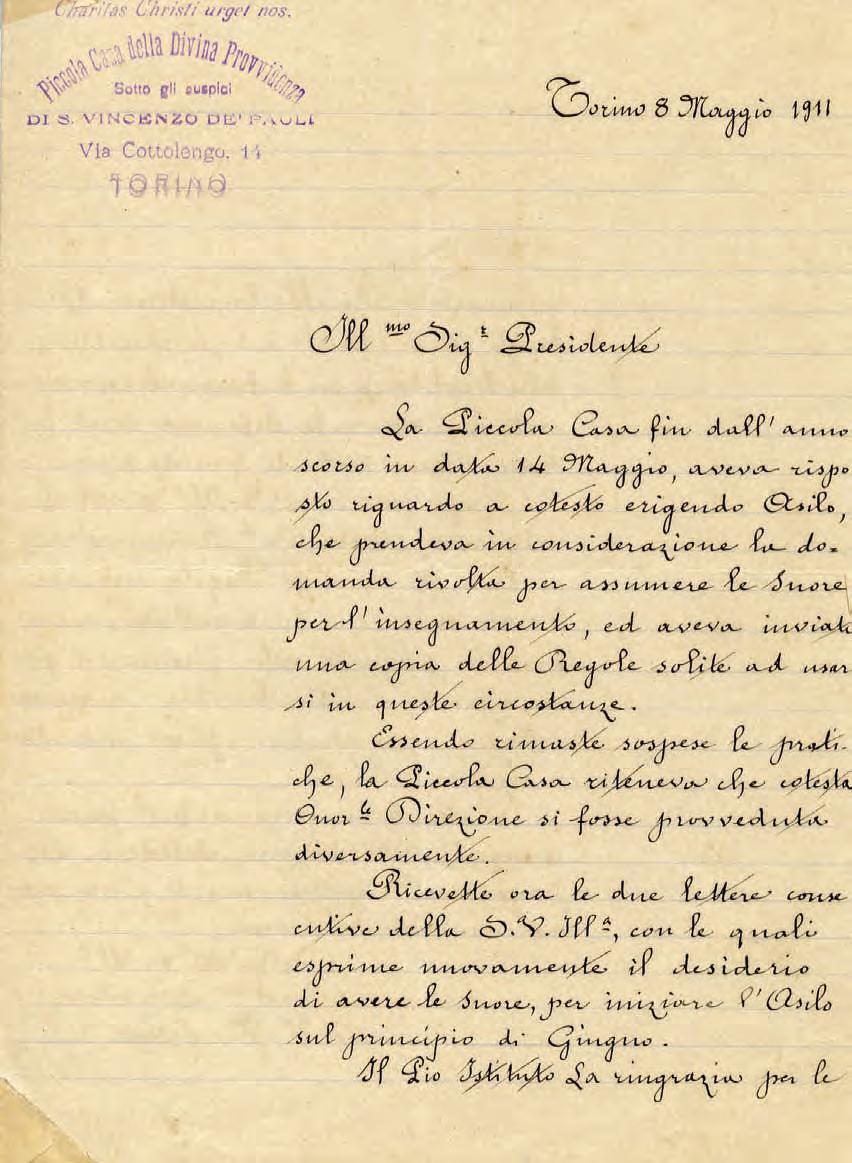 Charitas Christi urget nos.
Piccola Casa della Divina Provvidenza
Sotto gli auspici
DI S. VINCENZO DE' PAOLI
Via Cottolengo, 14
TORINO
Torino 8 Maggio 1911
Ill mo Sig r Presidente
La Piccola Casa fin dall' anno
scorso in data 14 Maggio, aveva rispo
sto riguardo a cotesto erigendo Asilo,
che prendeva in considerazione la do=
manda rivolta per assumere le Suore
per l' insegnamento, ed aveva inviat
una copia delle Regole solite ad usar
si in queste circostanze.
Essendo rimaste sospese le prati-
che, la Piccola Casa riteneva che cotesta
Onor le Direzione si fosse provveduta
diversamente.
Ricevette ora le due lettere conse
cutive della S.a V. Ill a, con le quali
esprime nuovamente il desiderio
di avere le Suore, per iniziare l' Asilo
sul principio di Giugno.
Il Pio Istituto La ringrazia per le